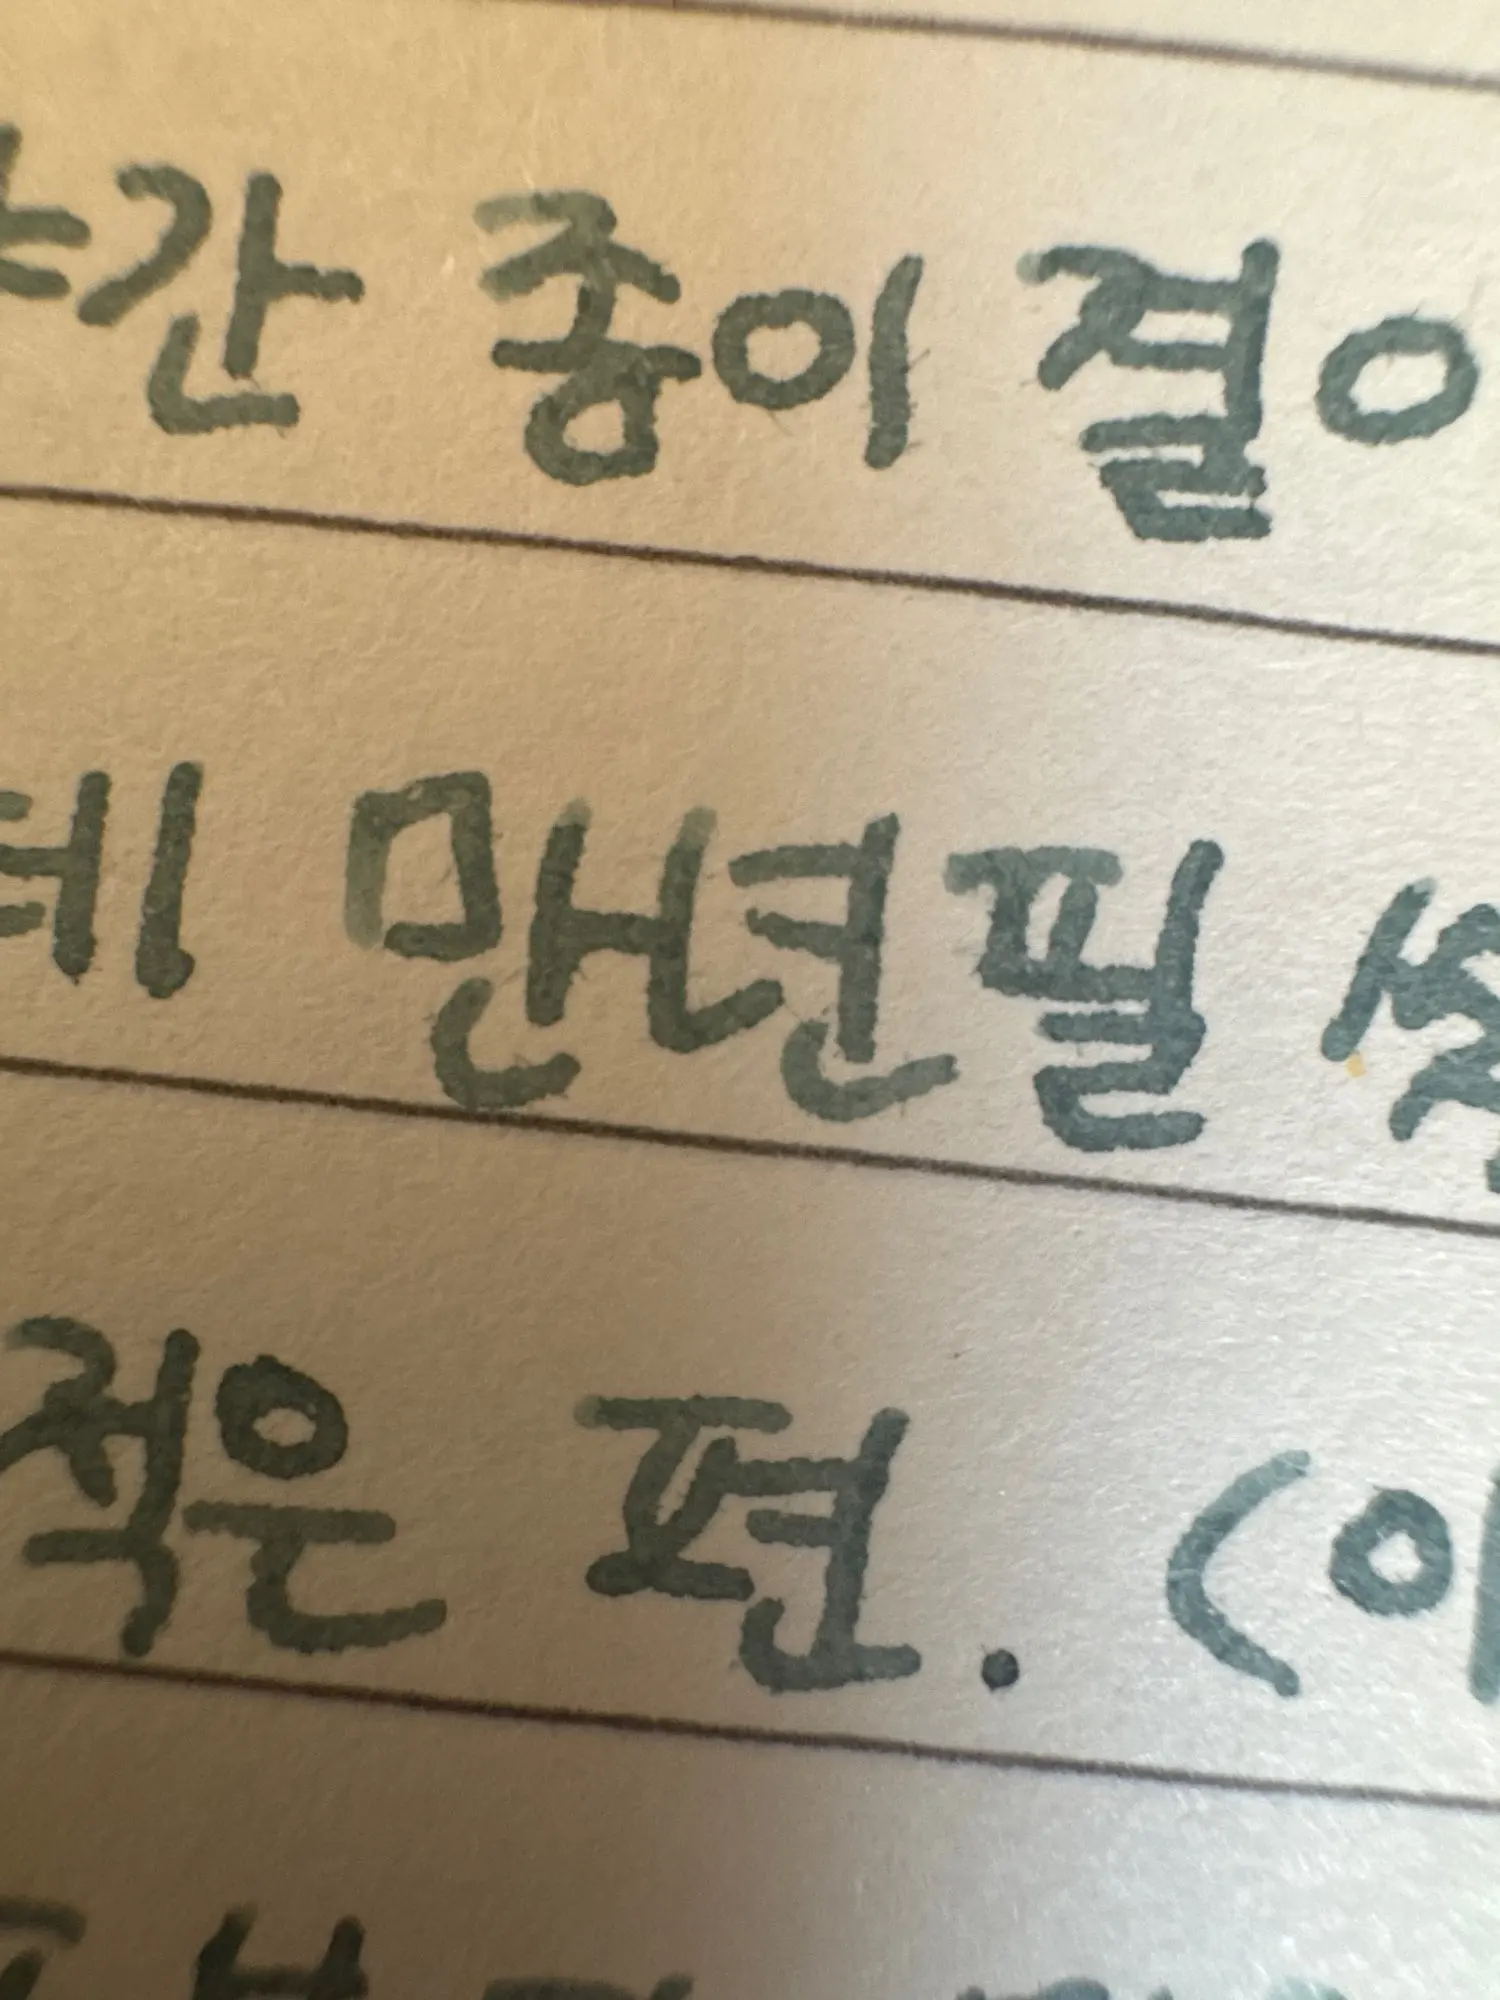 간 종이 질
데 만년필
적은 편. (이